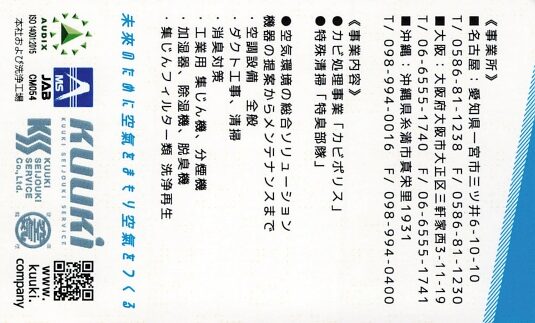 《事業所》
■名古屋：愛知県一宮市三ツ井6-10-10
T/ 0586-81-1238　F/ 0586-81-1230
■大阪：大阪府大阪市大正区三軒家西3-11-19
T/ 06-6555-1740　F/ 06-6555-1741
■沖縄：沖縄県糸満市真栄里1931
T/ 098-994-0016　F/ 098-994-0400
《事業内容》
●カビ処理事業「カビポリス」
●特殊清掃「特臭部隊」
●空気環境の総合ソリューション
機器の提案からメンテナンスまで
・空調設備 全般
・ダクト工事、清掃
・消臭対策
・工業用 集じん機、分煙機
・加湿器、除湿機、脱臭機
・集じんフィルター類 洗浄再生
未来のために空氣をまもり空氣をつくる
AUDIX
ISO 14001:2015
本社および洗浄工場
MS
JAB
CM054
kuuki
KUUKI SEIJOUKI SERVICE
KSS
KUUKI
SEIJOUKI
SERVICE
Co.,Ltd.
www.
kuuki.
company